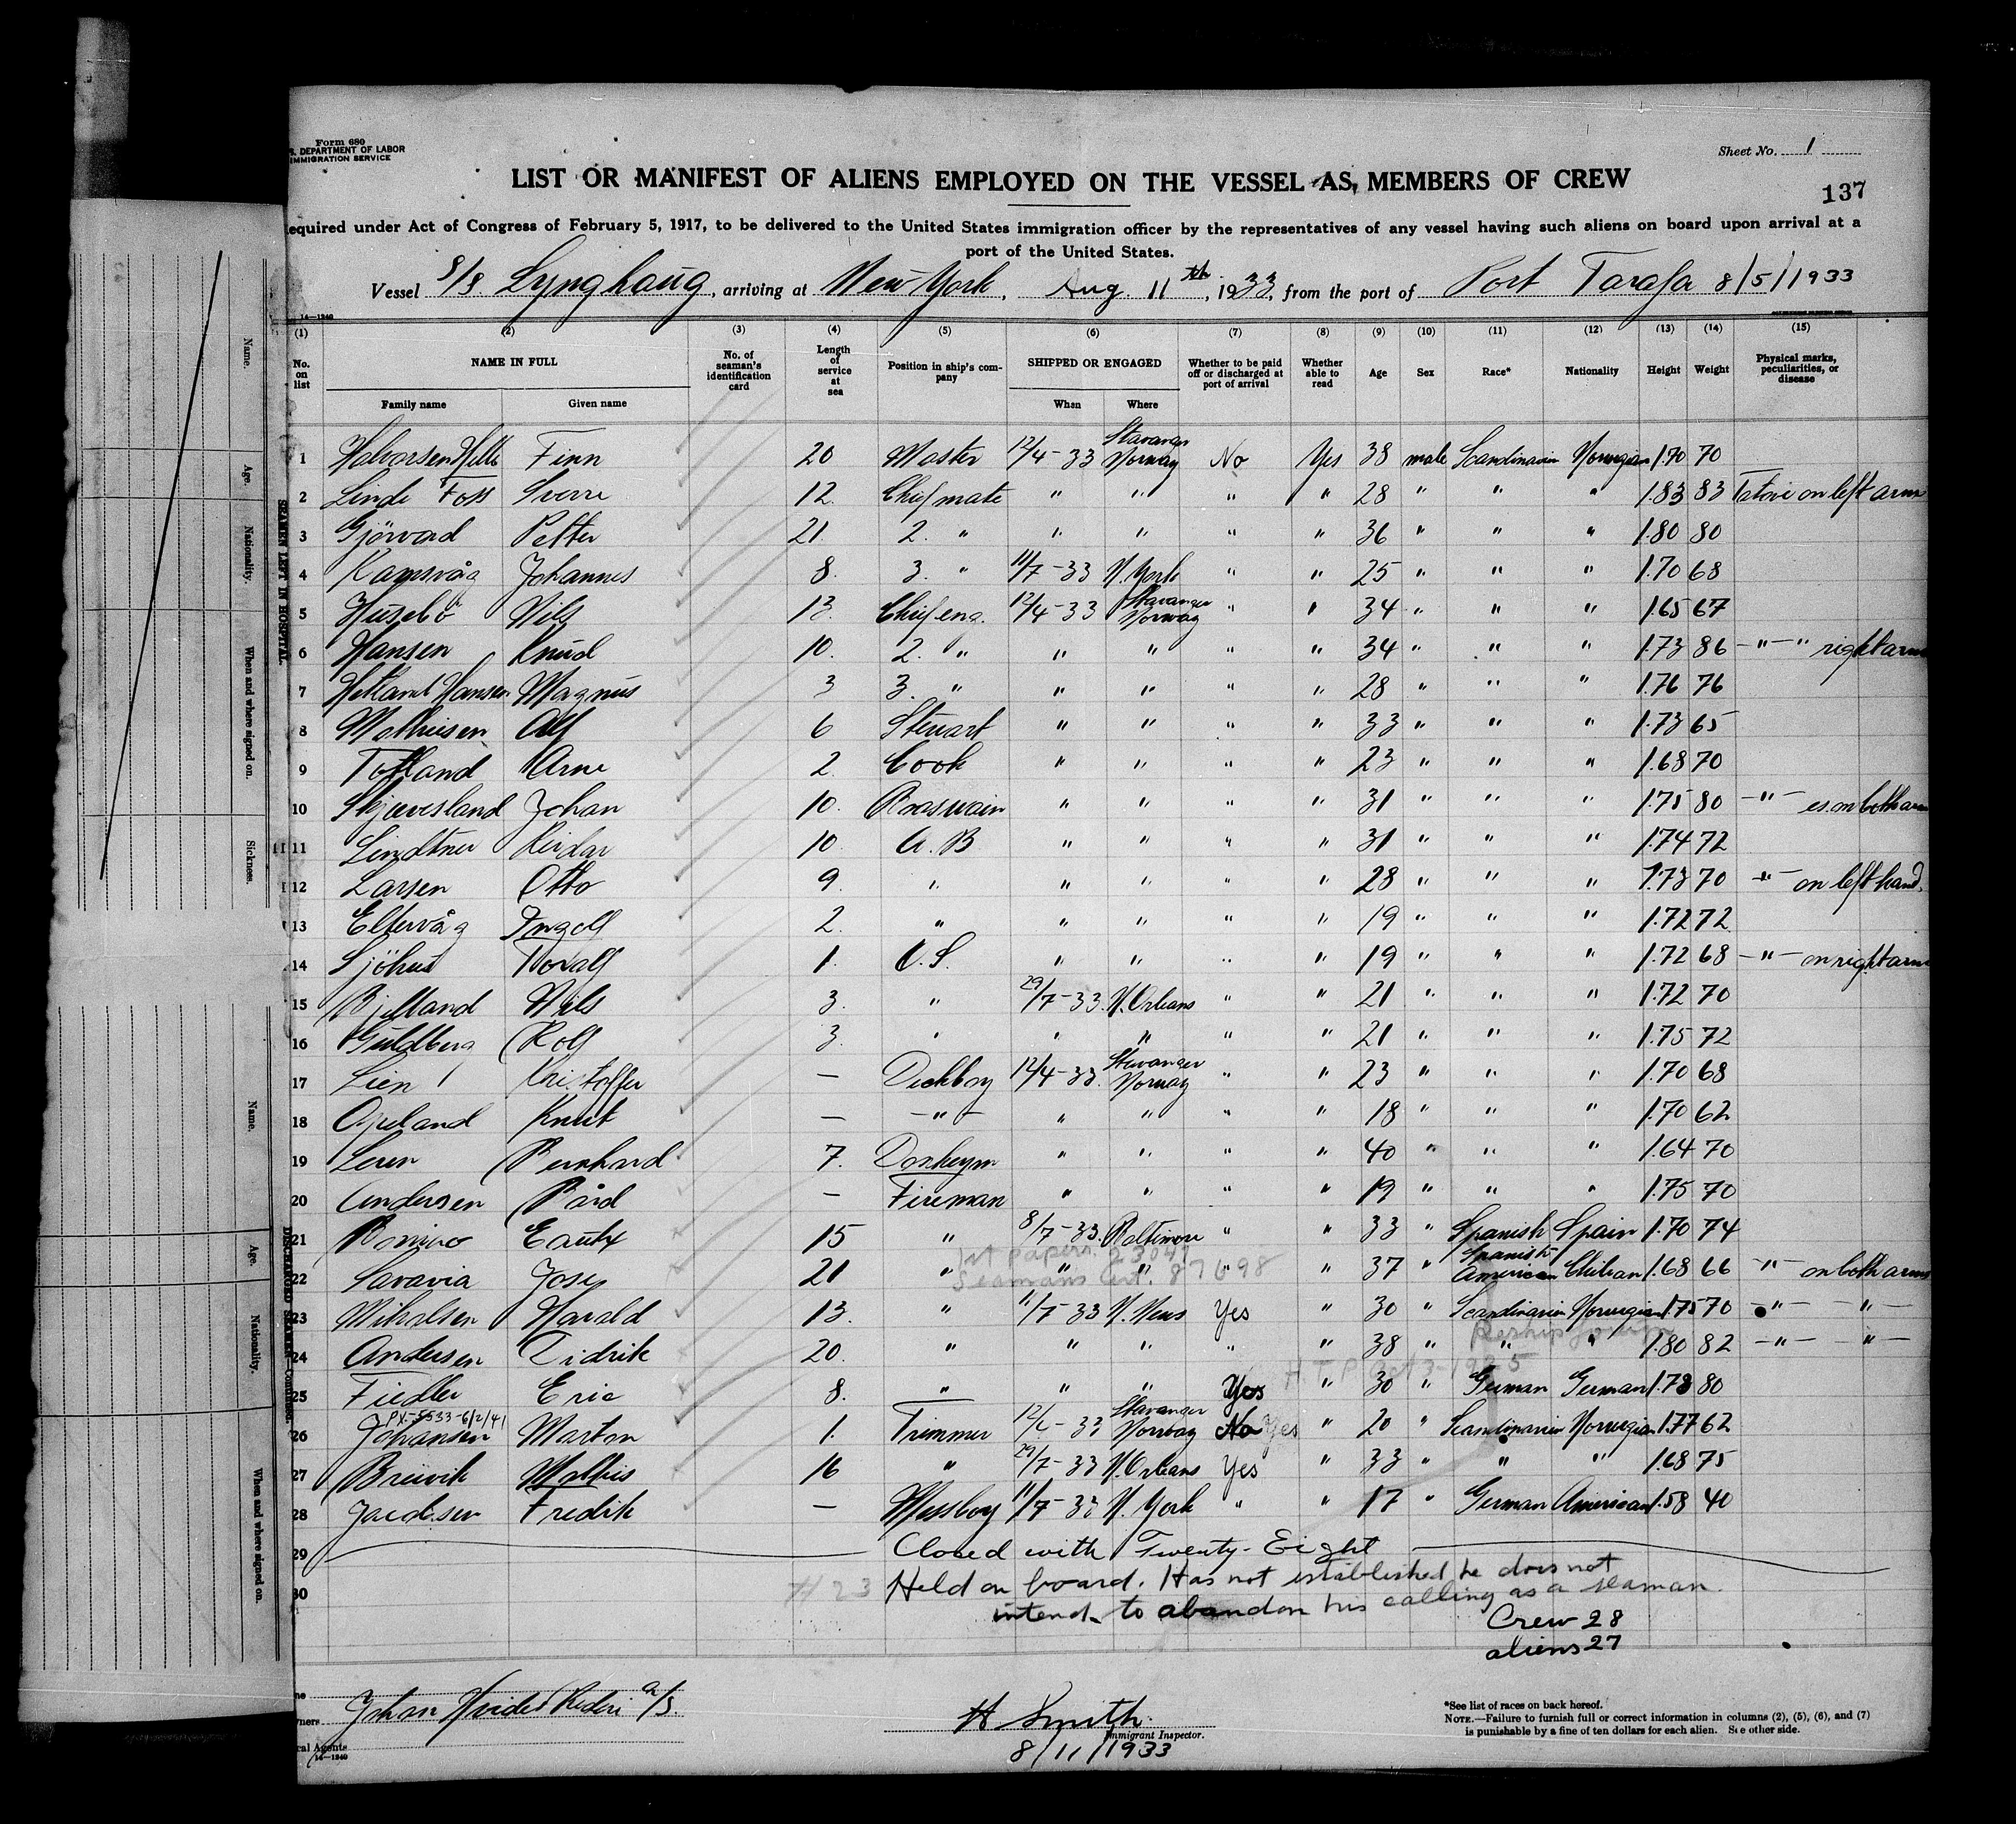 Form 680
S. DEPARTMENT OF LABOR
IMMIGRATION SERVICE
Sheet No. 1
LIST OR MANIFEST OF ALIENS EMPLOYED ON THE VESSEL AS MEMBERS OF CREW
137
equired under Act of Congress of February 5, 1917, to be delivered to the United States immigration officer by the representatives of any vessel having such aliens on board upon arrival at a
port of the United States.
Vessel S/S. Lynghaug, arriving at New-York, Aug. 11th, 1933, from the port of Port Tarafa 8/5/1933
14-1240
(1) (2) (3) (4) (5) (6) (7) (8) (9) (10) (11) (12) (13) (14) (15)
No. on list NAME IN FULL No. of seaman's identification card Length of service at sea Position in ship's company SHIPPED OR ENGAGED Whether to be paid off or discharged at port of arrival Whether able to read Age Sex Race* Nationality Height Weight Physical marks, peculiarities, or disease
Family name Given name When Where
1 Halvorsen Hille Finn 20 Master 12/4-33 Stavanger Norway No Yes 38 male Scandinavian Norwegian 1.70 70
2 Linde Foss Sverre 12. Chief mate " " " " 28 " " " 1.83 83 Tatoie on left arm
3 Gjörvad Petter 21. 2. " " " " " 36 " " " 1.80 80
4 Ramsvåg Johannes 8. 3. " 11/7-33 N. York " " 25 " " " 1.70 68
5 Husebö Nils 13. Chief eng. 12/4-33 Stavanger Norway " " 34 " " " 1.65 67
6 Hansen Knud 10. 2. " " " " " 34 " " " 1.73 86 -"-" right arm
7 Hetland Hansen Magnus 3 3. " " " " " 28 " " " 1.76 76
8 Mathisen Alf 6 Steuart " " " " 33 " " " 1.73 65
9 Totland Arne 2. Cook " " " " 23 " " " 1.68 70
10 Skjævesland Johan 10. Boaswain " " " " 31 " " " 1.75 80 -"- es. on both arm
11 Lindtner Reidar 10. A. B " " " " 31 " " " 1.74 72
12 Larsen Otto 9. " " " " " 28 " " " 1.73 70 -"- on left hand.
13 Eltervåg Ingolf 2. " " " " " 19 " " " 1.72 72
14 Sjöhus Toralf 1. O.S. " " " " 19 " " " 1.72 68 -"- on right arm
15 Bjelland Nils 3. " 29/7-33. N. Orleans " " 21 " " " 1.72 70
16 Guldberg Rolf 3. " " " " " 21 " " " 1.75 72
17 Lien Kristoffer — Deckboy 12/4-33. Stavanger Norway " " 23 " " " 1.70 68
18 Opeland Knut — -"- " " " " 18 " " " 1.70 62
19 Leren Bernhard 7. Donkeym " " " " 40 " " " 1.64 70
20 Andersen Bård — Fireman " " " " 19 " " " 1.75 70
21 Romiro 15 " 8/7-33. Baltimore " " 33 " Spanish Spain 1.70 74
1st papers
22 Saravia Jose 21 " " " " " 37 " Spanish American Chilean 1.68 66 -"- on both arms
Seamans Cert. 87698
23 Mikalsen Harald 13. " 11/7-33 N. News Yes " 30 " Scandinavian Norwegian 1.75 70 -"- -"-
24 Andersen Didrik 20. " " " " " 38 " " " 1.80 82 -"- -"-
25 Fiedler Eric 8. " " " Yes " 30 " German German 1.78 80
PX-5533-6/2/41
26 Johansen Marton 1. Trimmer 12/4-33 Stavanger Norway No Yes " 20 " Scandinavian Norwegian 1.77 62
27 Breivik Mathis 16 " 29/7-33 N. Orleans Yes " 33 " " " 1.68 75
28 Jacobsen Fredrik — Messboy 11/7-33 N. York " " 17 " German American 1.58 40
29 Closed with Twenty-Eight
30 #23 Held on board. Has not established he does not
intend to abandon his calling as a seaman.
Crew 28
aliens 27
Johan Rederi a/s.
wners
ral Agents
14-1240
H Smith
Immigrant Inspector.
8/11/1933
*See list of races on back hereof.
NOTE.—Failure to furnish full or correct information in columns (2), (5), (6), and (7)
is punishable by a fine of ten dollars for each alien. See other side.
SEAMEN LEFT IN HOSPITAL
Name.
Age.
Nationality.
When and where signed on.
Sickness.
DISCHARGED SEAMEN—Continued.
Name.
Age.
Nationality.
When and where signed on.